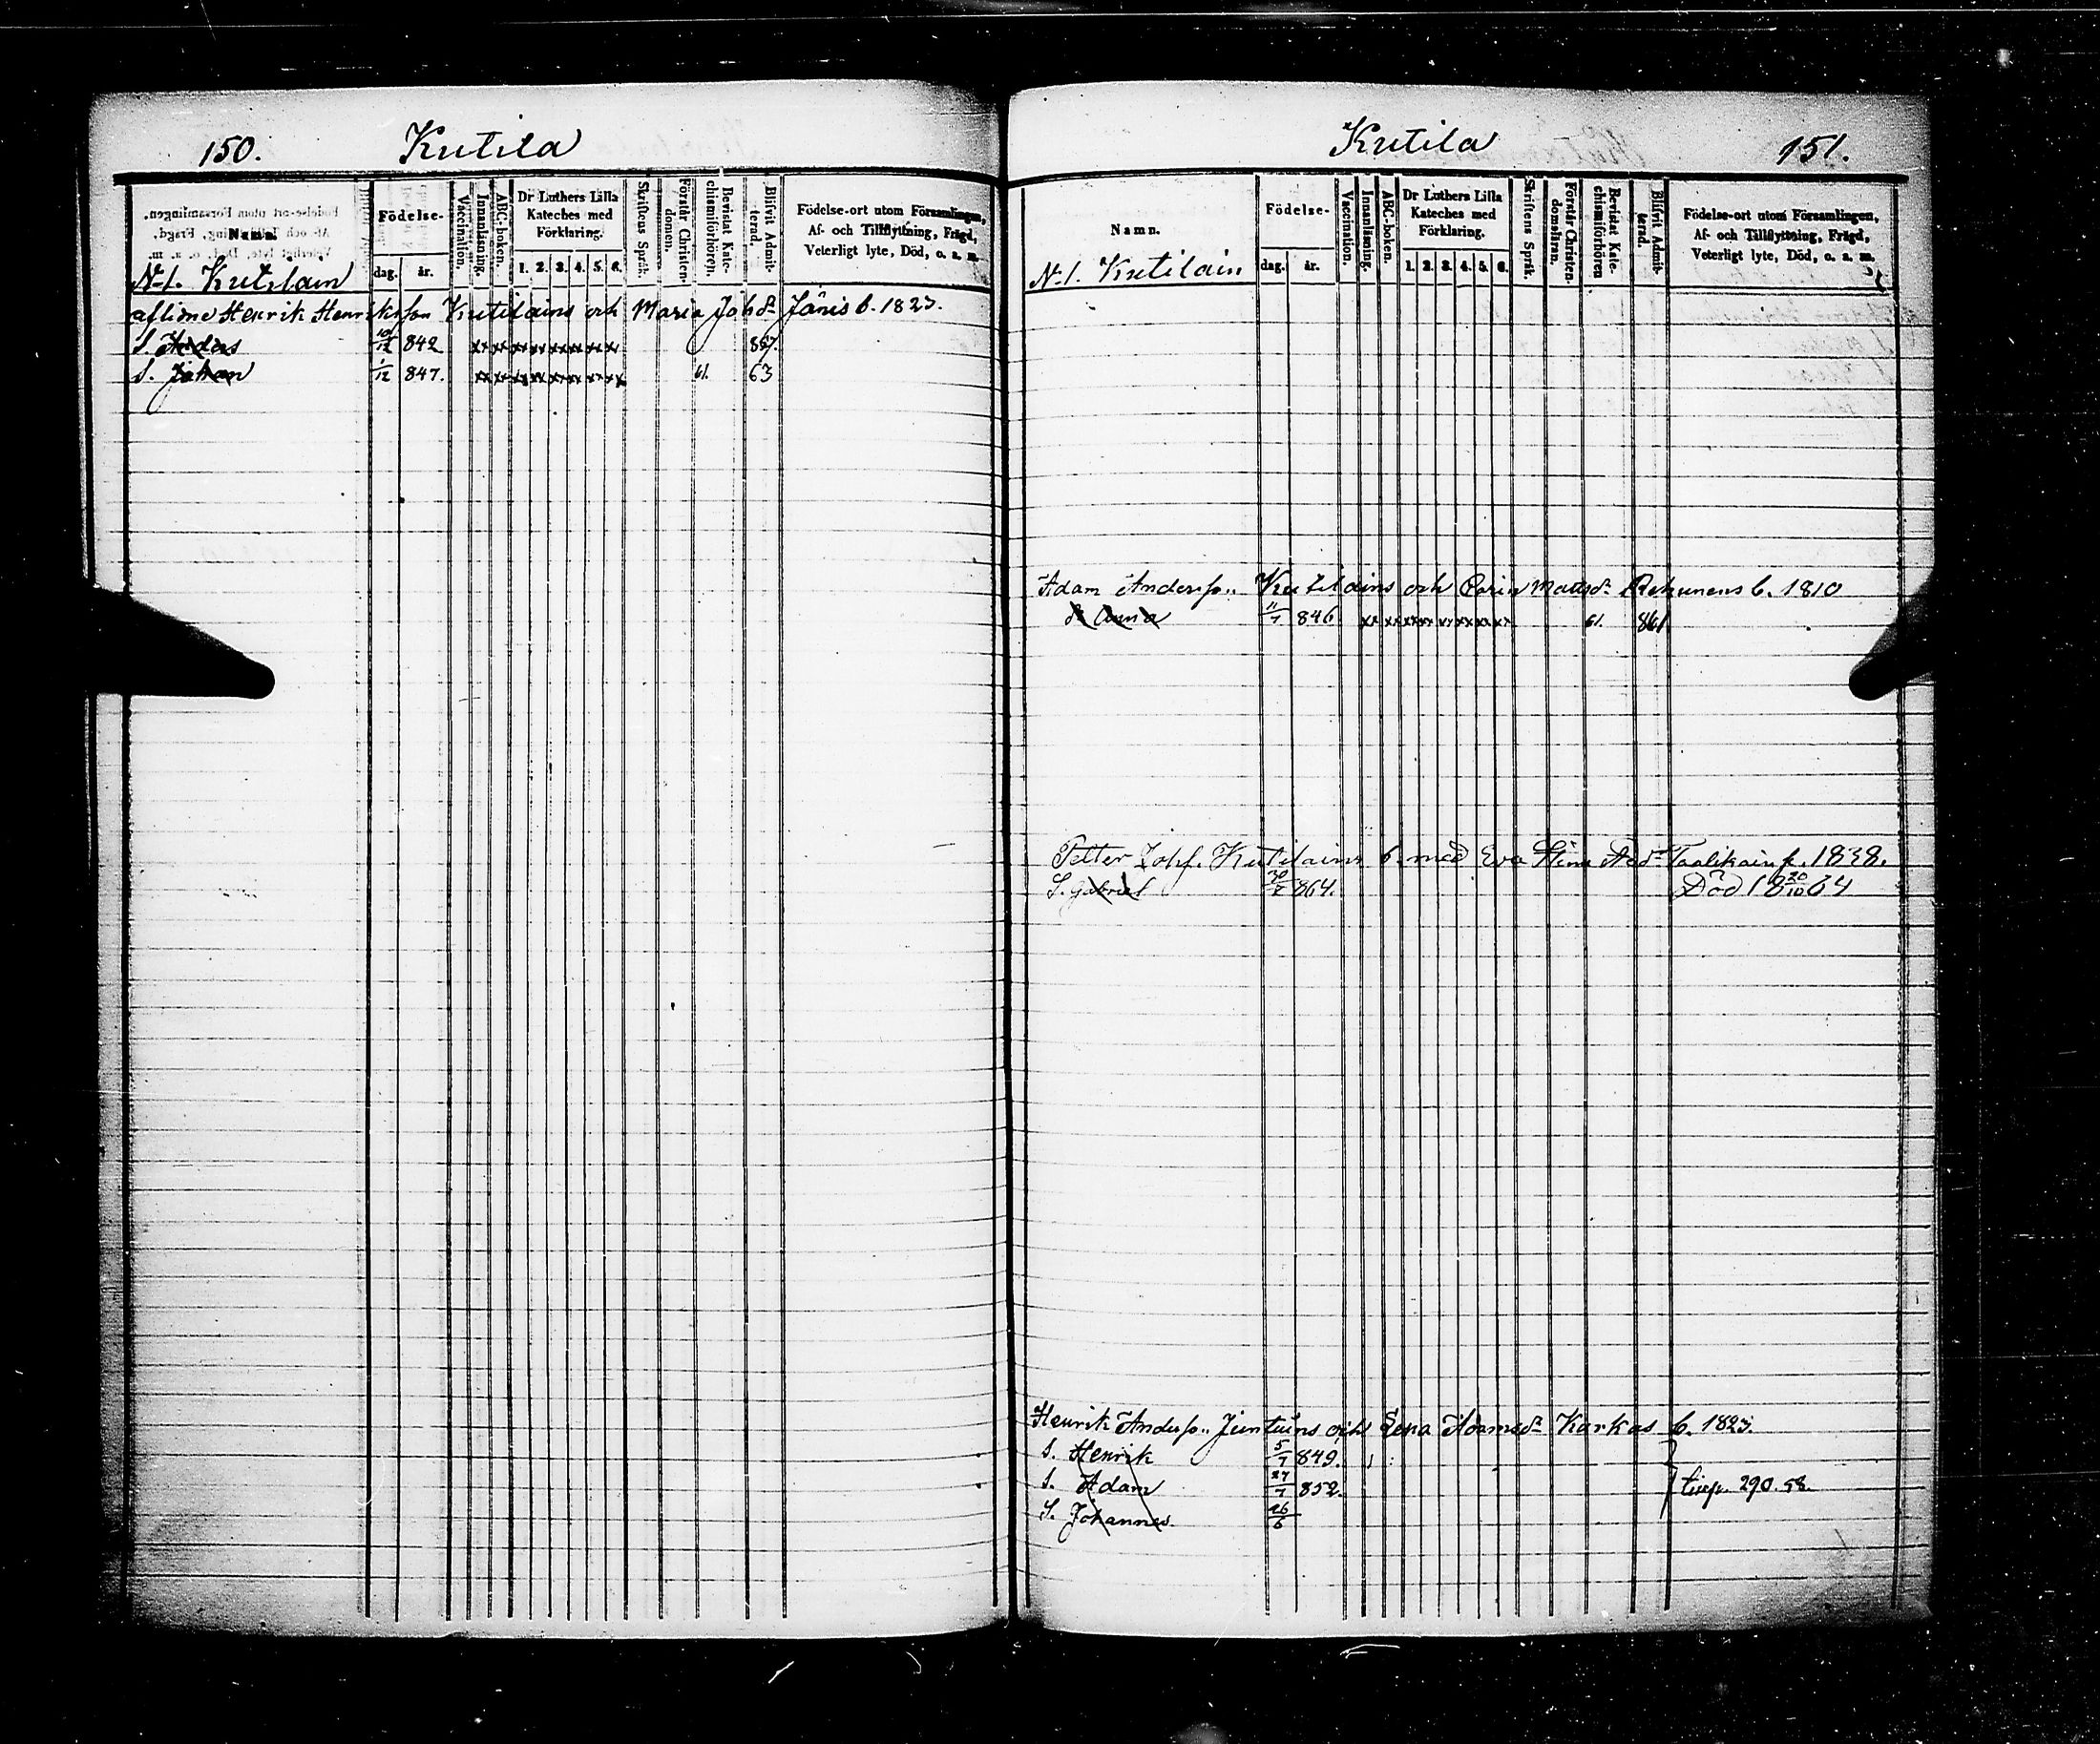 150. Kutila
Namn.
Födelse-
dag. år.
Vaccination.
Innanläsning.
ABC-boken.
Dr Luthers Lilla
Kateches med
Förklaring.
1. 2. 3. 4. 5. 6.
Skriftens Språk.
Förstår Christen-
domen.
Bevistat Kate-
chismiförhören.
Blifvit Admit-
terad.
Födelse-ort utom Församlingen,
Af- och Tillflyttning, Frägd,
Veterligt lyte, Död, o. s. m.
N-1. Kutilain
aflidne Henrik Henriksson Kutilains och Maria Johdr Jänis b. 1823.
S. Anders 10/12 842 xx xx xx xx xx xx xx xx 857.
S. Johan 1/12 847. xx xx xx xx xx xx xx xx 61. 63
Kutila 151.
Namn.
Födelse-
dag. år.
Vaccination.
Innanläsning.
ABC-boken.
Dr Luthers Lilla
Kateches med
Förklaring.
1. 2. 3. 4. 5. 6.
Skriftens Språk.
Förstår Christen-
domsläran.
Bevistat Kate-
chismiförhören
Blifvit Admit-
terad.
Födelse-ort utom Församlingen,
Af- och Tillflyttning, Frägd,
Veterligt lyte, Död, o. s. m.
N-1. Kutilain
Adam Anderss. Kutilains och Carin Mattsdr Rehunens b. 1810
Anna 11/7 846 xx xx xx xx xx xx xx xx 61. 861
Petter Johs. Kutilains b med Eva Stina Taalikain f. 1838.
S. Gabriel 864. Död 18 20/10 64
Henrik Anderss. Juntuins och Lena Adamsdr Karkas b. 1823.
S. Henrik 5/7 849.
S. Adam 27/7 852. 290. 58.
S. Johannes 26/6